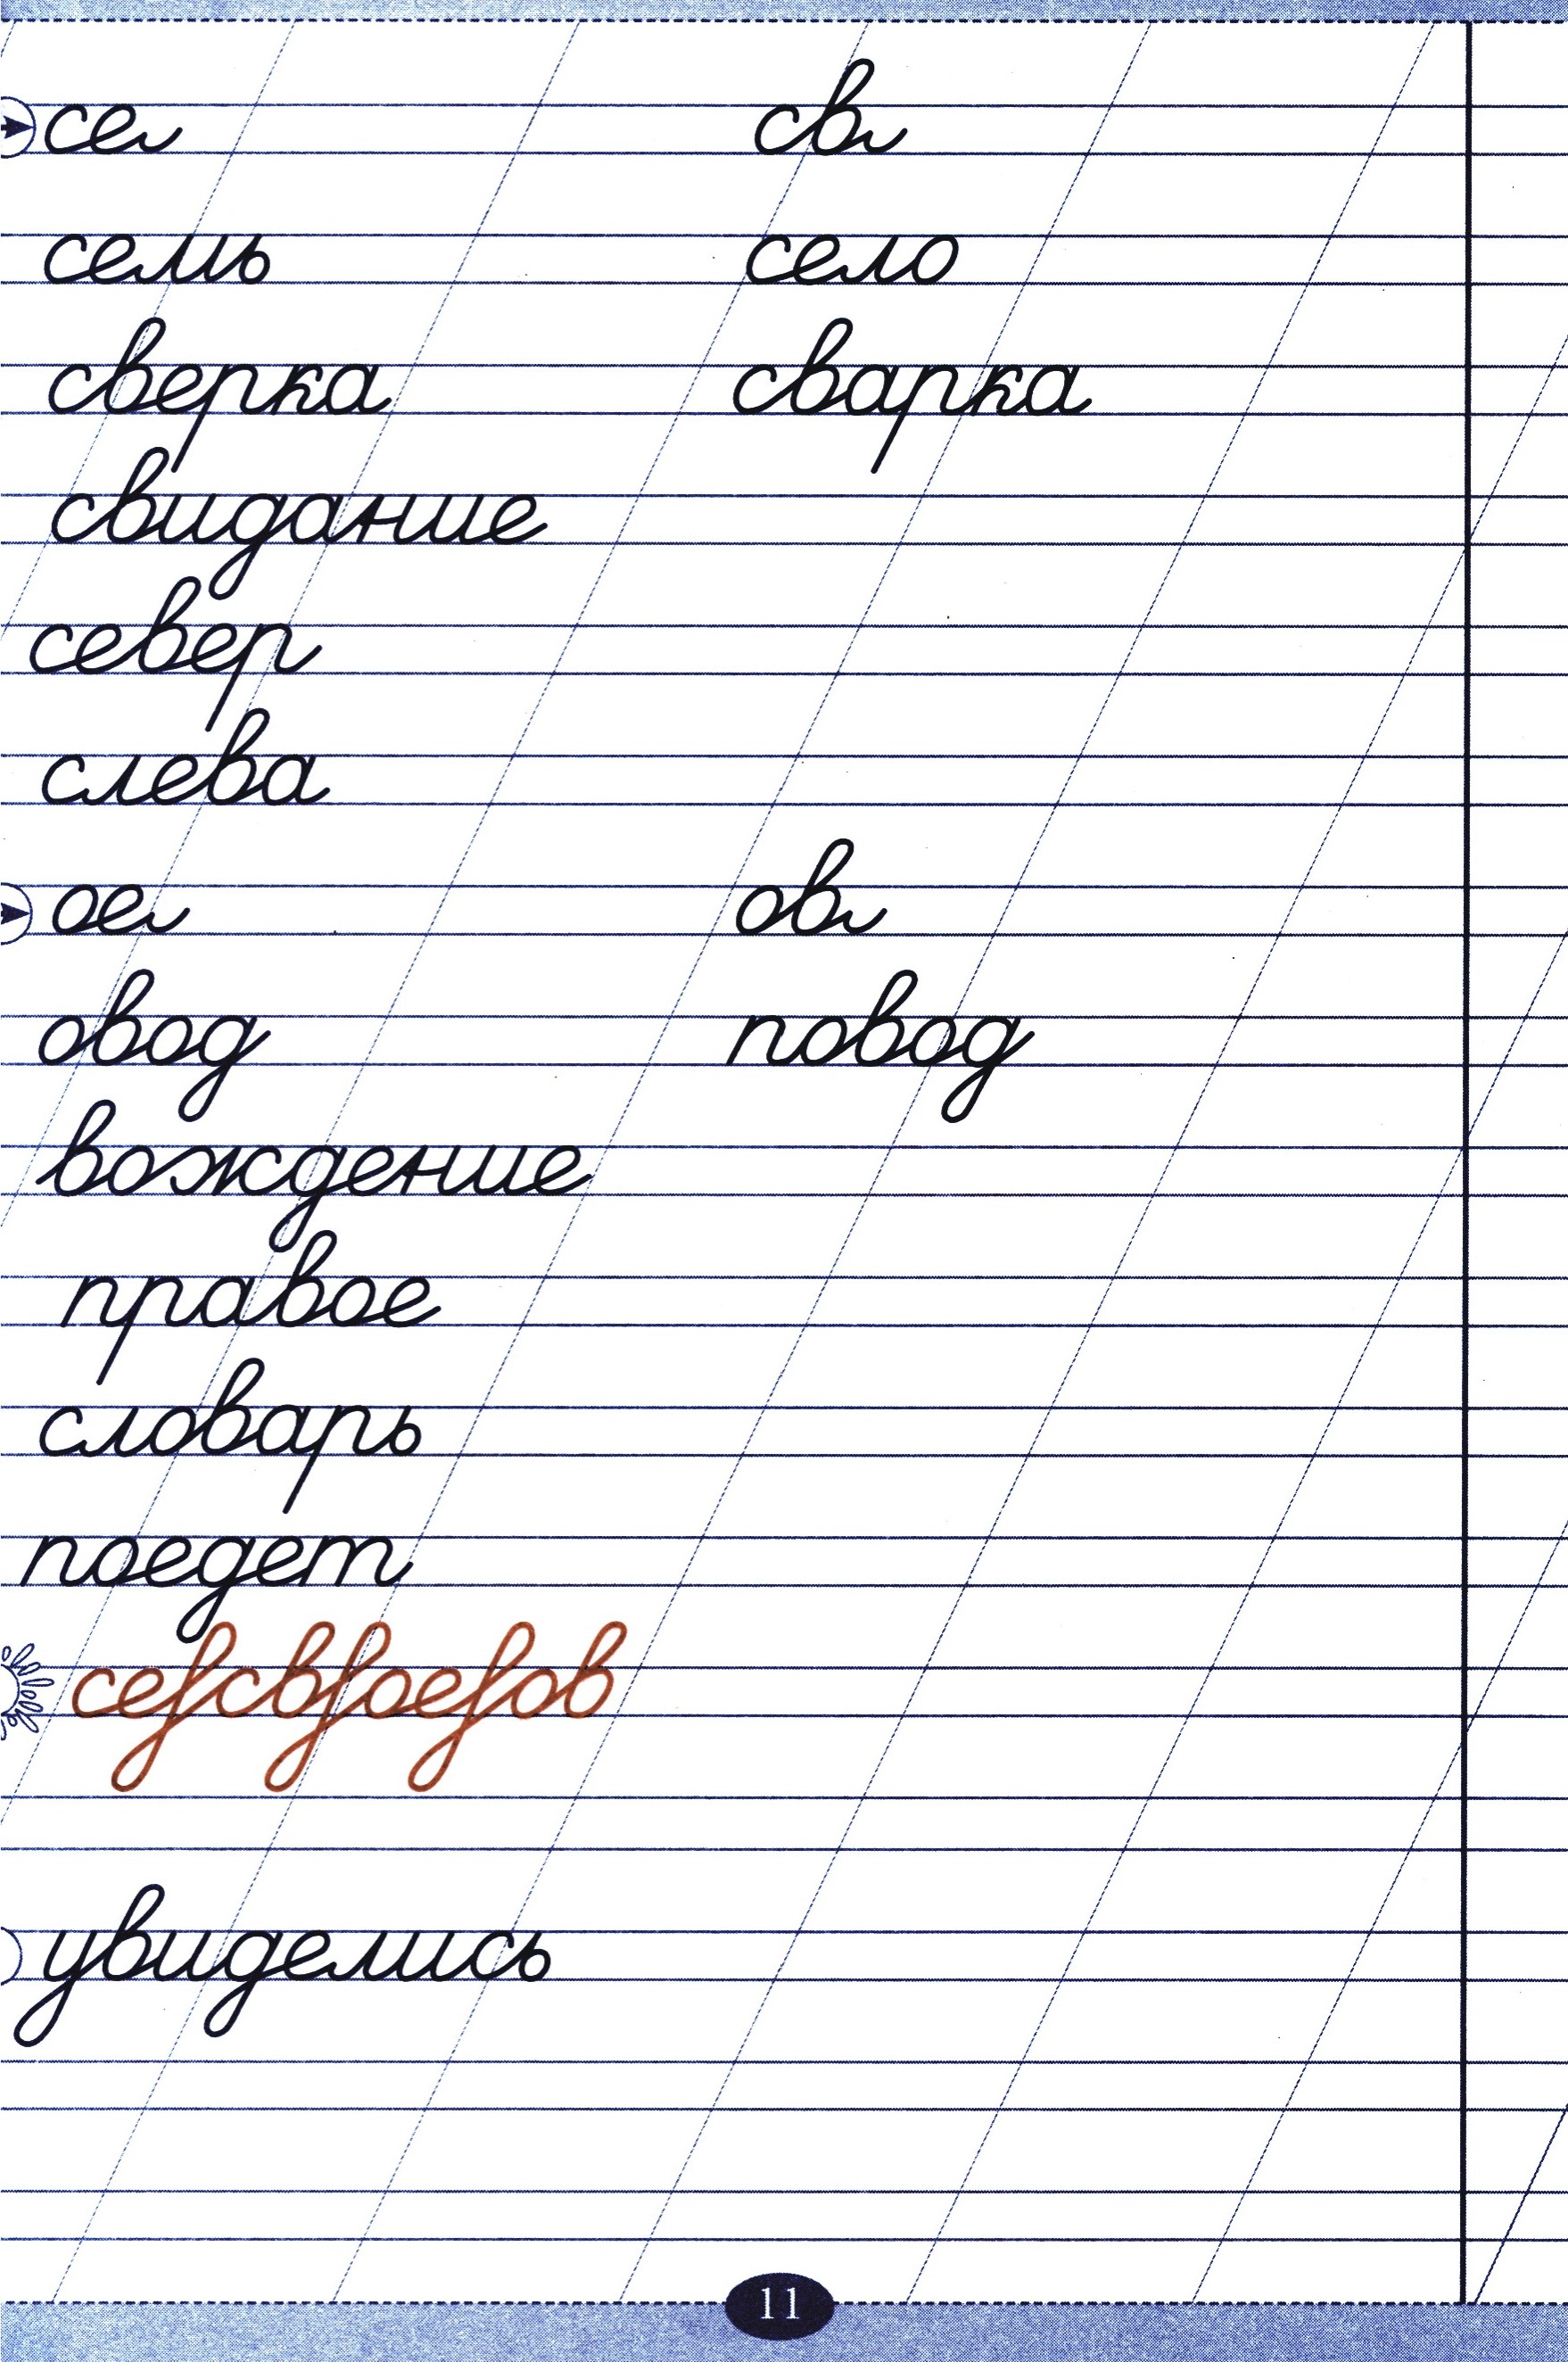 се св
семь село
сверка сварка
свидание
север
слева
ое ов
овод повод
вождение
правое
словарь
поедет
сеſсвſоеſов
увиделись
11